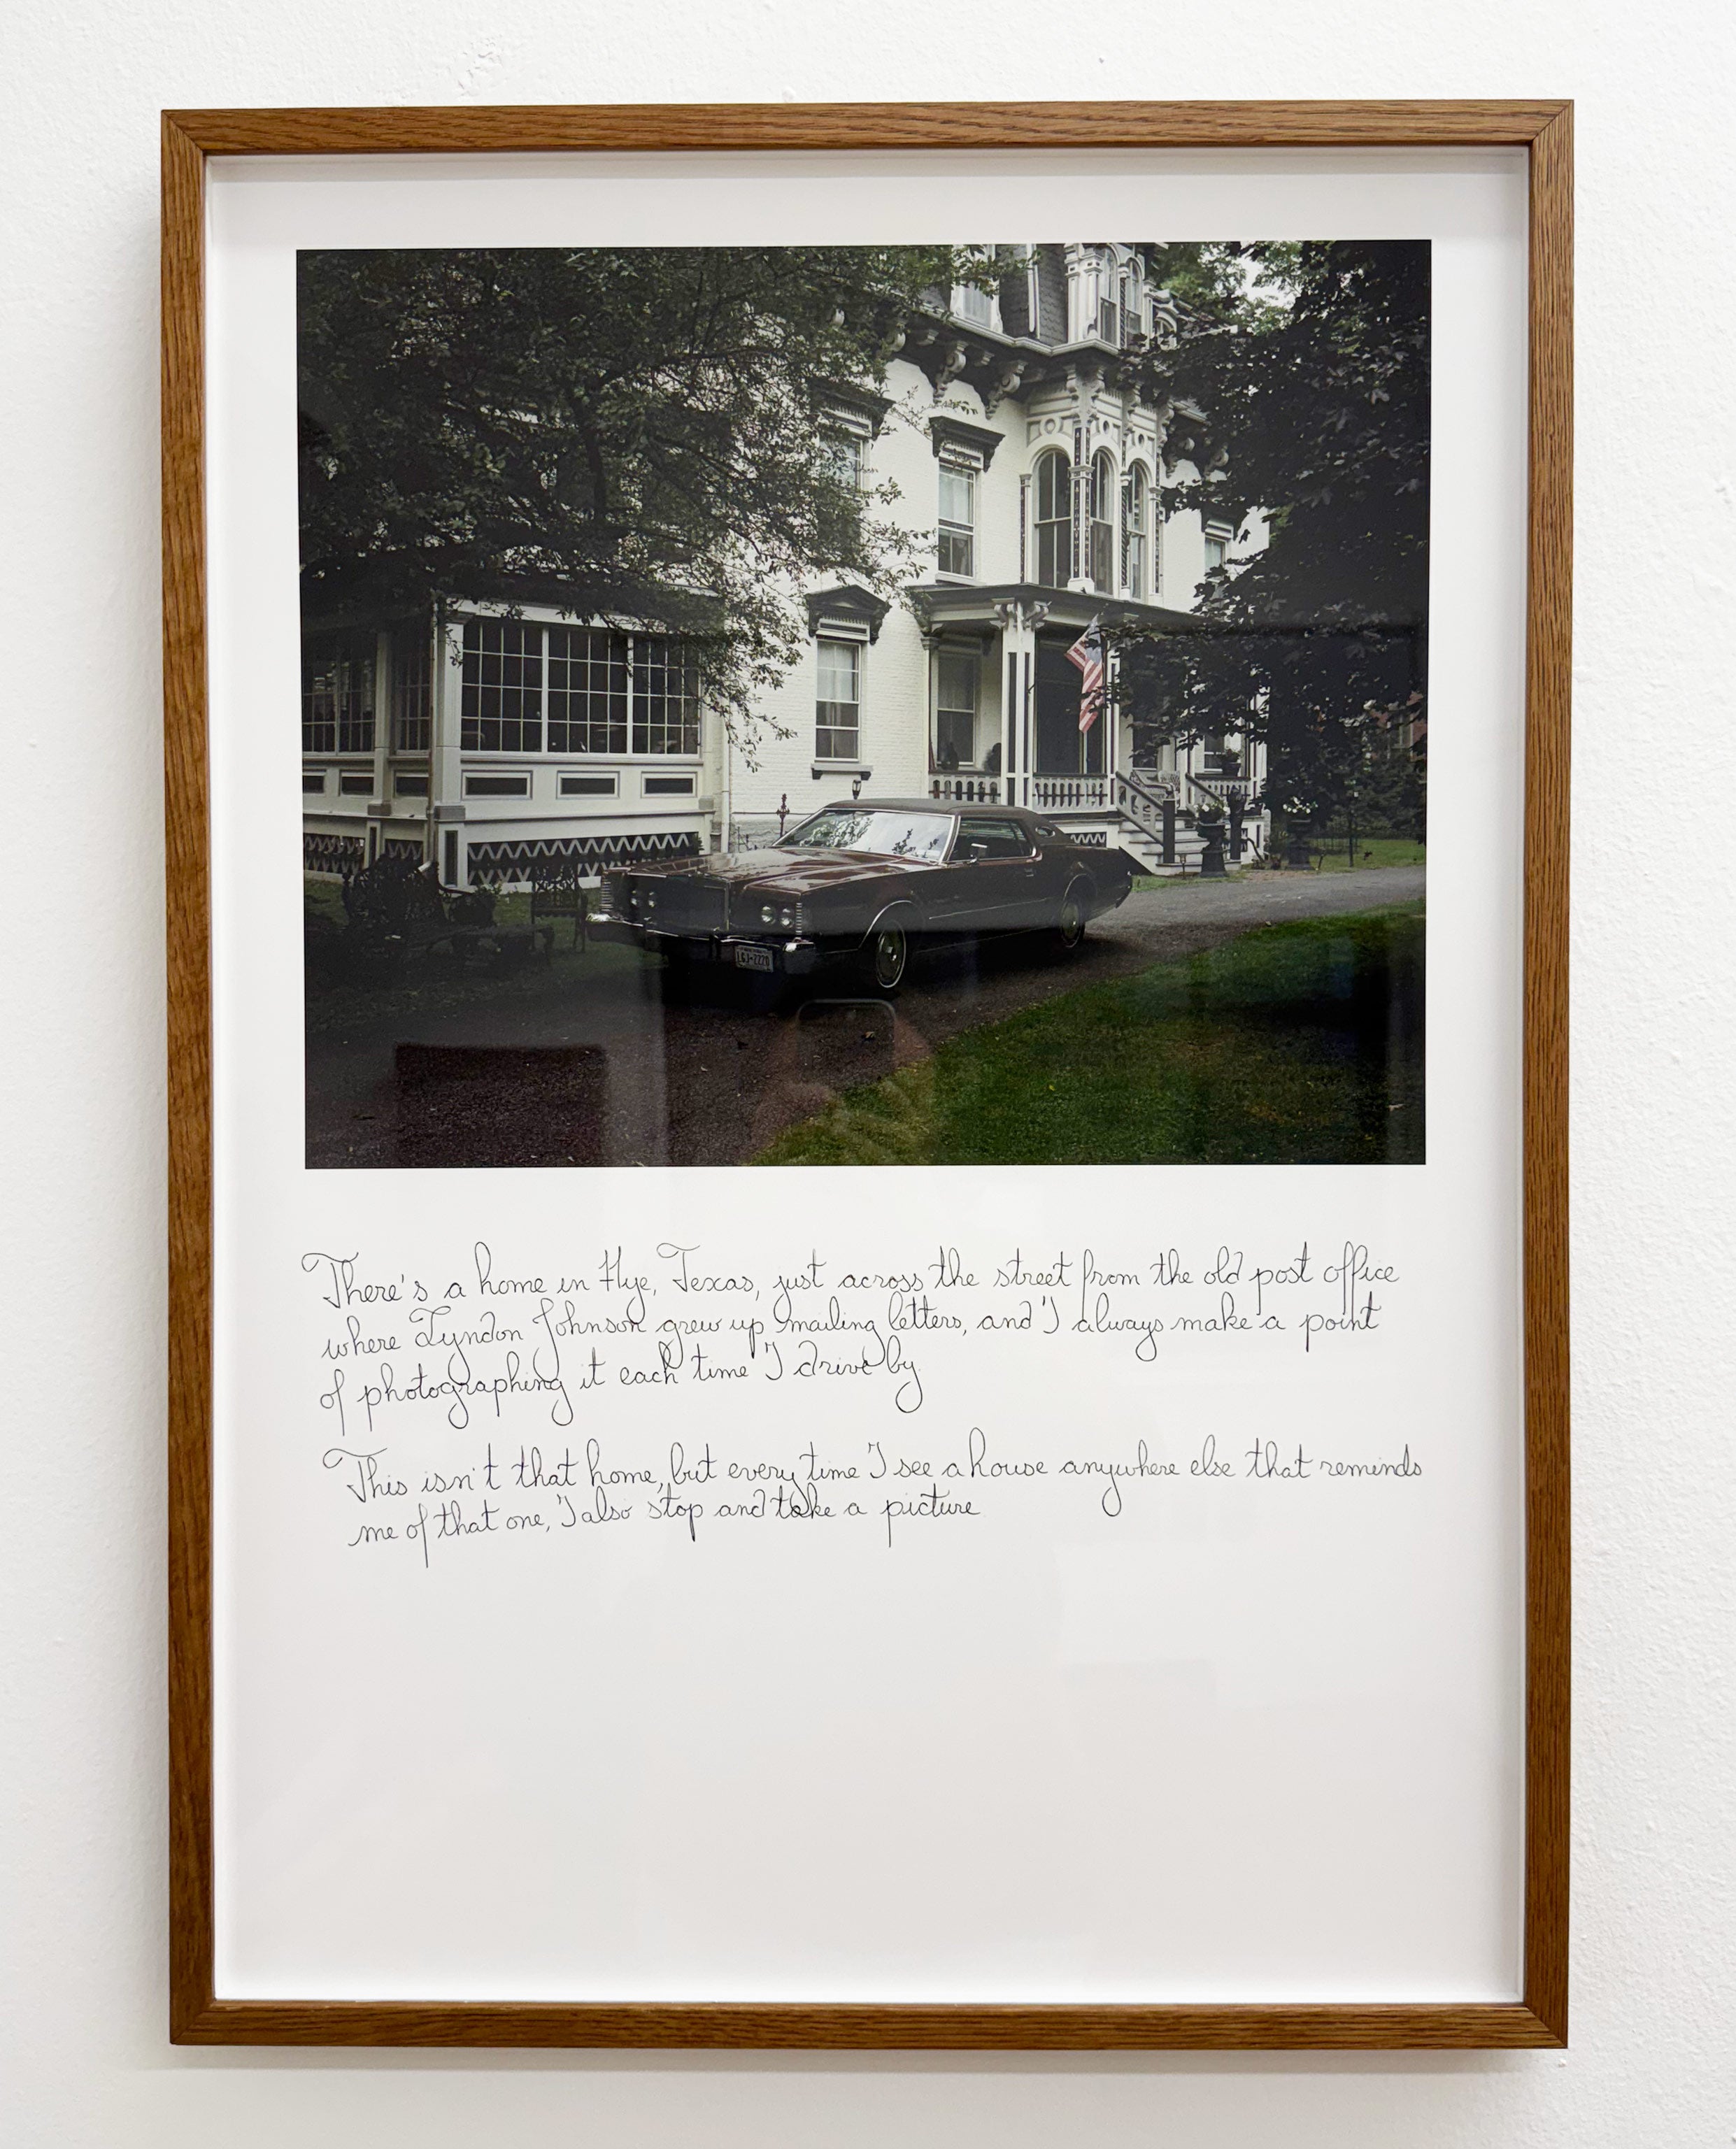 LGJ-2220
There's a home in Hye, Texas, just across the street from the old post office
where Lyndon Johnson grew up mailing letters, and I always make a point
of photographing it each time I drive by.
This isn't that home, but every time I see a house anywhere else that reminds
me of that one, I also stop and take a picture.